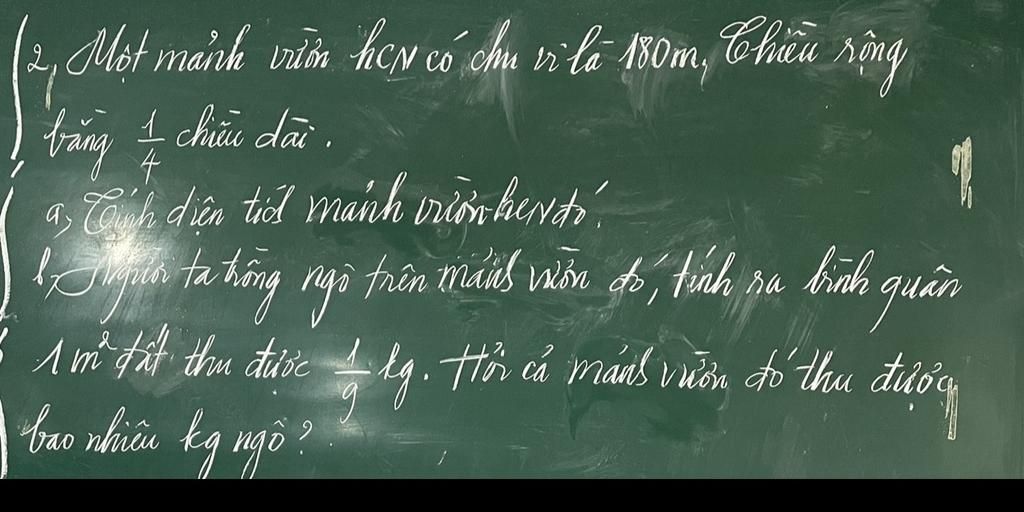 2, Một mảnh vườn hCN có chu vi là 180m, Chiều rộng
bằng 1/4 chiều dài.
a, Tính diện tích mảnh vườn hCN đó.
b, Người ta trồng ngô trên mảnh vườn đó, tính ra bình quân
1m² đất thu được 1/9 kg. Hỏi cả mảnh vườn đó thu được
bao nhiêu kg ngô?